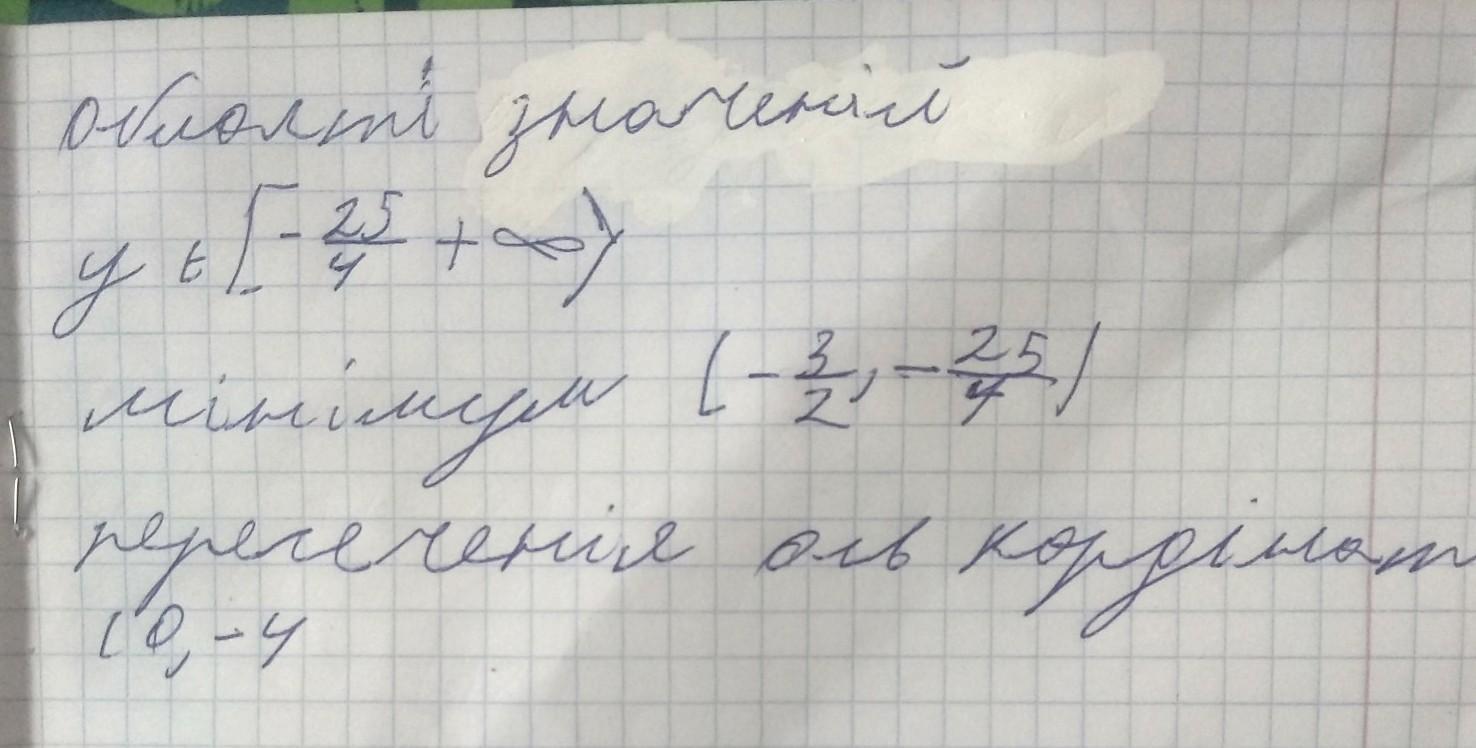 області значеній
y ∈ [-25/4 + ∞)
мінімум (-3/2, -25/4)
пересеченія ось кордінат
(0, -4